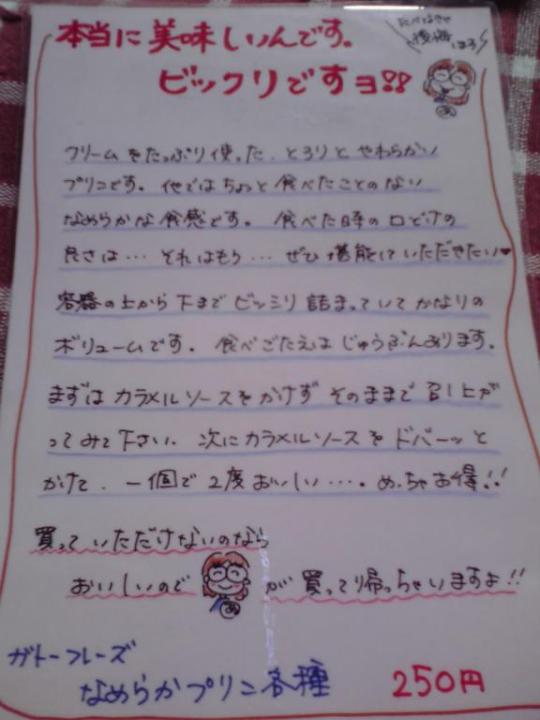 本当に美味しいんです。
ビックリですヨ!!
たべなきゃ
後悔
クリームをたっぷり使った、とろりとやわらかい
プリンです。他ではちょっと食べたことのない
なめらかな食感です。食べた時の口どけの
良さは…それはもう…ぜひ堪能していただきたい♥
容器の上から下までビッシリ詰まっていてかなりの
ボリュームです。食べごたえはじゅうぶんあります。
まずはカラメルソースをかけずそのままで召し上が
ってみて下さい。次にカラメルソースをドバーッと
かけて、一個で2度おいしい….めっちゃお得!!
買っていただけないのなら
おいしいので が買って帰っちゃいますよ!!
ガトーフレーズ
なめらかプリン各種 250円